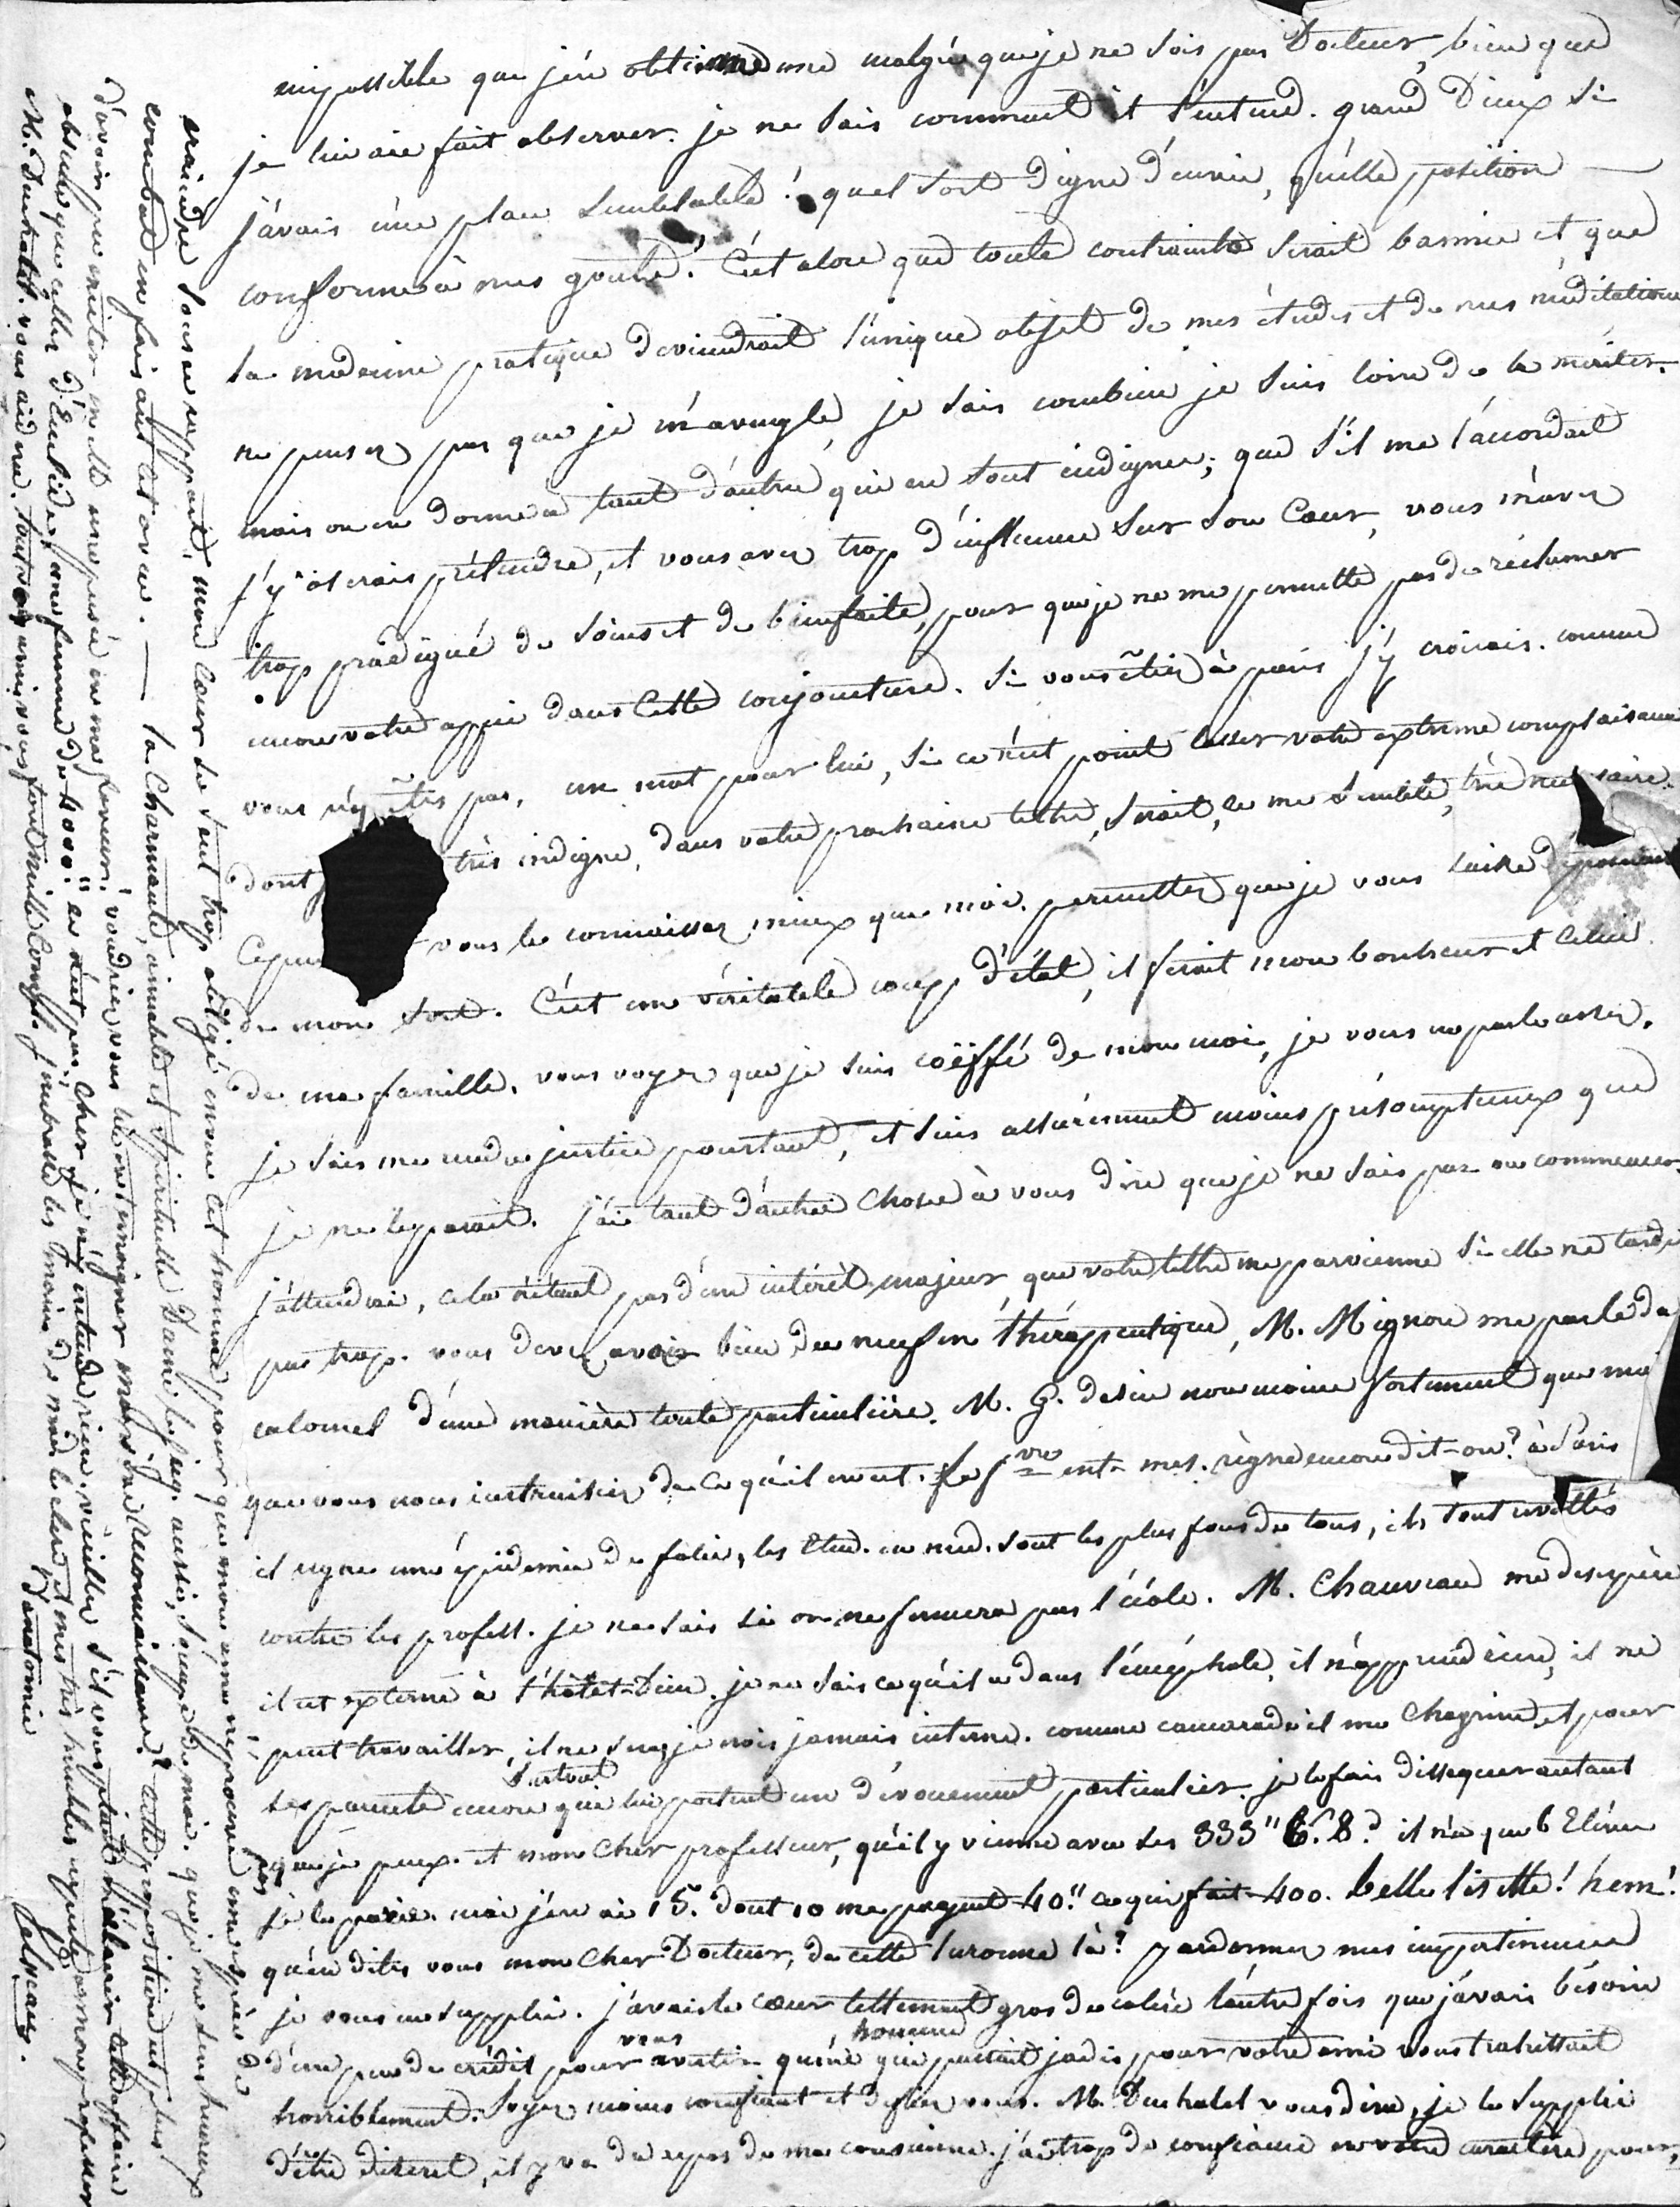 impossible que j'en obtienne une malgré que je ne sois pas Docteur, bien que
je lui aie fait observer. je ne sais comment il l'entend. grand Dieux si
j'avais une place semblable! quel sort digne d'envie, quelle position
conforme à mes gouts! C'est alors que toute contrainte serait bannie et que
la médecine pratique deviendrait l'unique objet de mes études et de mes méditations
ne pensez pas que je m'aveugle, je sais combien je suis loin de la mériter.
mais on en donne à tant d'autres qui en sont indignes; que s'il me l'accordait
j'y oserais prétendre, et vous avez trop d'influence sur son Coeur, vous m'avez
trop prodigué de soins et de bienfaits, pour que je ne me permette pas de réclamer
encore votre appui dans Cette conjoncture. Si vous étiez à paris j'y croirais. comme
vous n'y êtes pas, un mot pour lui, si ce n'est point lasser votre extreme complaisance
dont très indigne, dans votre prochaine lettre, serait, ce me semble, très nécessaire.
Cepen vous le connaissez mieux que moi. permettez que je vous laisse dépositaire
de mon sort. C'est un véritable coup d'état, il ferait mon bonheur et celui
de ma famille. vous voyez que je suis coëffé de mon moi, je vous en parle assez.
je sais me rendre justice pourtant, et suis assurément moins présomptueux que
je ne le parait. j'ai tant d'autres choses à vous dire que je ne sais par ou commencer.
j'attendrai, cela n'étant pas d'un intérêt majeur, que votre lettre me parvienne si elle ne tarde
pas trop. vous devez avoir bien du neuf en thérapeutique, M. Mignon me parle du
calomel d'une manière toute particulière. M. G. desire non moins fortement que moi
que vous nous instruisiez de ce qu'il en est. La f^vre ent- mes. règne encore dit-on? à Paris
il regne une épidemie de folie, les Etud. en med. sont les plus fous de tous, ils sont revoltés
contre les profess. je ne sais si on ne fermera pas l'école. M. Chauveau me desespère
il est externe à l'hôtel-Dieu. je ne sais ce qu'il a dans l'encéphale, il n'apprend rien, il ne
peut travailler, il ne sera je crois jamais interne. comme camarade il me chagrine, et pour
ses parents surtout encore qui lui portent un dévouement particulier. je le fais dissequer autant
que je peux. et mon cher professeur, qu'il y vienne avec ses 333" 6.s 8.d il n'a que 6 Elèves
je le parie. moi j'en ai 15. dont 10 me payent 40." ce qui fait 400. belle lisette! hem!
qu'en dites vous mon cher Docteur, de cette luronne là? pardonnez mes impertinences
je vous en supplie. j'avais le coeur tellement gros de colère l'autre fois que j'avais bésoin
d'un peu de crédit pour vous avertir qu'un homme qui passait jadis pour votre ami vous trahissait
horriblement. Soyez moins confiant et defiez vous. M. Duchatel vous dira, je le supplie
d'être discret, il y va du repos de ma conscience. j'ai trop de confiance en votre caractère pour,
craindre mon coeur se sent trop obligé envers cet homme pour que mon ame n'éprouve une espèce de
combat en faisant cet aveu. — la Charmante, aimable et spirituelle Dame
d'avoir pu exciter en elle une pensée en ma faveur. voudriez vous lui en temoigner ma vive reconnaissance?
obscure que celles d'Euclide, une femme de 40000." ce n'est pas, cher je n'y entends rien. veuillez s'il vous plait m'éclaircir cette affaire
M. Duchatel. vous aidera. tout vos amis vous font mille compl. j'embrasse les mains de et mes très humbles respects à mon professeur
D'anatomie